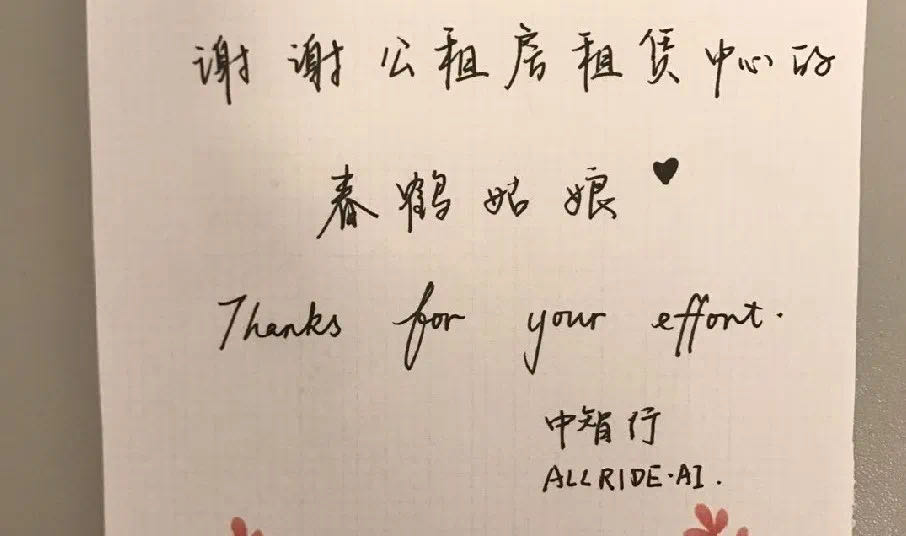 谢谢公租房租赁中心的
春鹤姑娘♥
Thanks for your effort.
中智行
ALLRIDE.AI.